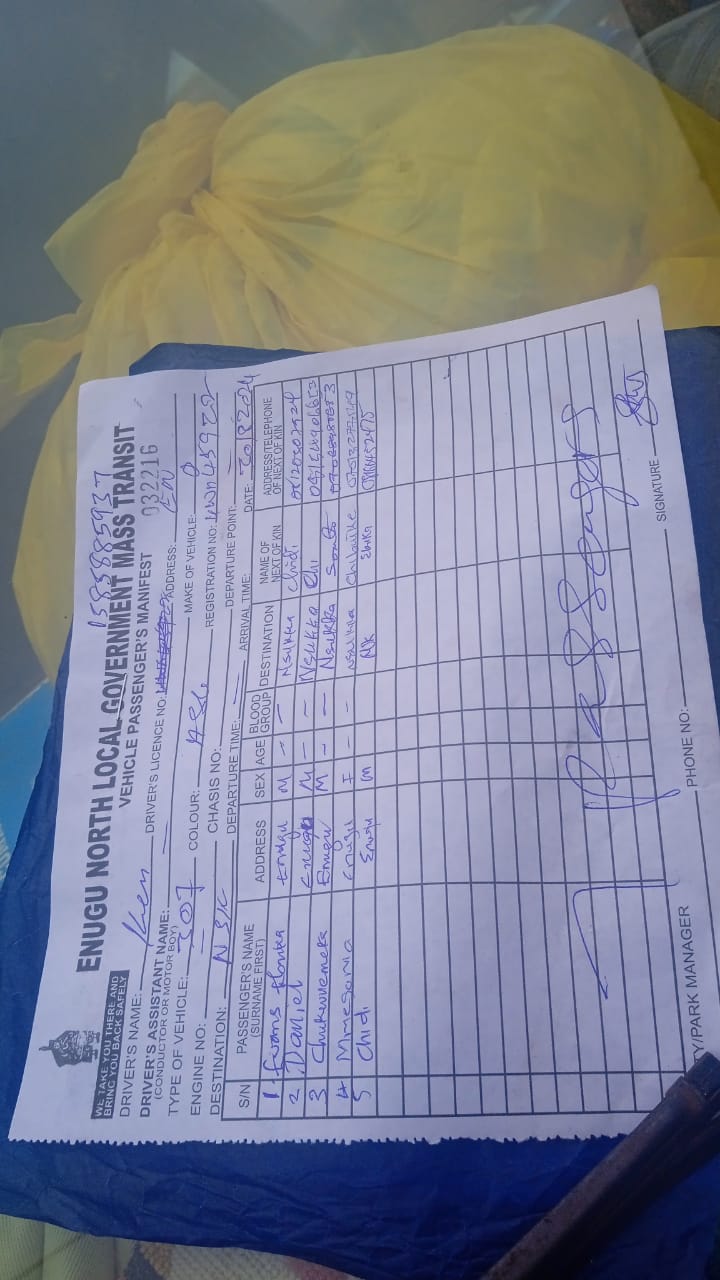 ENUGU NORTH LOCAL GOVERNMENT MASS TRANSIT
VEHICLE PASSENGER'S MANIFEST
032216
WE TAKE YOU THERE AND
BRING YOU BACK SAFELY
DRIVER'S NAME: Ken DRIVER'S LICENCE NO: ADDRESS: EN
DRIVER'S ASSISTANT NAME:
(CONDUCTOR OR MOTOR BOY)
TYPE OF VEHICLE: 307 COLOUR: Ash MAKE OF VEHICLE: P
ENGINE NO: CHASIS NO: REGISTRATION NO:
DESTINATION: NSK DEPARTURE TIME: ARRIVAL TIME: DEPARTURE POINT:
DATE:
S/N PASSENGER'S NAME (SURNAME FIRST) ADDRESS SEX AGE BLOOD GROUP DESTINATION NAME OF NEXT OF KIN ADDRESS/TELEPHONE OF NEXT OF KIN
1 Enugu M - - Nsukka Chidi
2 Daniel Enugu M - - Nsukka Chi
3 Chukwuemeka Enugu M - - Nsukka
4 Mmesoma Enugu F - - Nsukka Chibuike
5 Chidi Enugu M NK Ebuka
7 Passengers
Y/PARK MANAGER PHONE NO: SIGNATURE